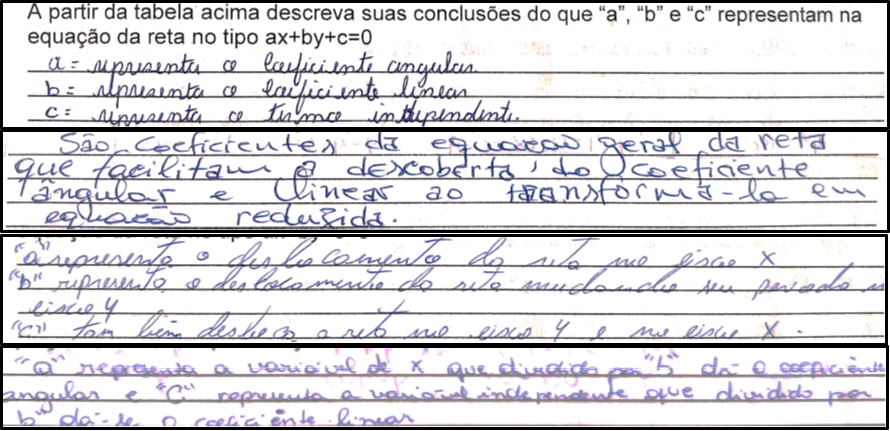 A partir da tabela acima descreva suas conclusões do que “a”, “b” e “c” representam na
equação da reta no tipo ax+by+c=0
a = representa o coeficiente angular.
b = representa o coeficiente linear
c = representa o termo independente.
São coeficientes da equação geral da reta
que facilitam a descoberta, do coeficiente
ângular e linear ao transformá-la em
equação reduzida.
"a" representa o deslocamento da reta no eixo x
"b" representa o deslocamento da reta mudando seu
eixo y
"c" tam bém desloca a reta no eixo y e no eixo x.
"a" representa a variável de x que dividido por "b" dá o coeficiênte
angular e "C" representa a variável independente que dividido por
b" dá-se o coeficiênte linear